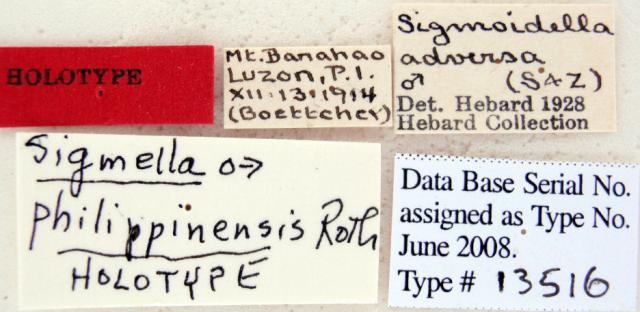 HOLOTYPE
Mt. Banahao
Luzon, P.I.
XII.13.1914
(Boettcher)
Sigmoidella
adversa
♂ (S&Z)
Det. Hebard 1928
Hebard Collection
Sigmella ♂
philippinensis Roth
HOLOTYPE
Data Base Serial No.
assigned as Type No.
June 2008.
Type # 13516